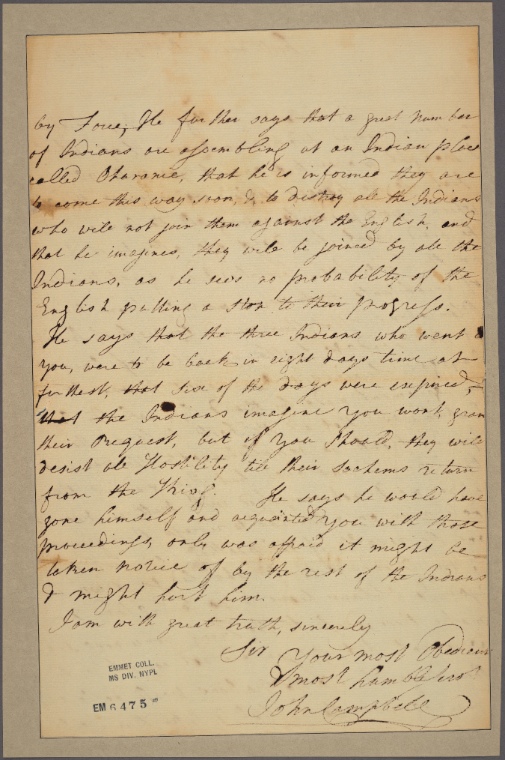 by Force, He further says that a great Number
of Indians are assembling at an Indian place
called that he is informed they are
to come this way soon, & to distroy all the Indians
who will not join them against the English, and
that he imagines, they will be joined by all the
Indians, as he sees no probability of the
English putting a stop to their progress.
He says that the three Indians who went
you, were to be back in eight days time at
furthest, that six of the days were expired,
that the Indians imagine you wont grant
their Request, but if you should, they will
desist all Hostility till their Sachems return
from the King. He says he would have
gone himself and acquainted you with those
proceedings, only was afraid it might be
taken notice of by the rest of the Indians
& might hurt him.
I am with great truth, sincerely
Sir Your most Obedient
& most humble Servt
John Campbell
EMMET COLL.
MS DIV. NYPL
EM 6475